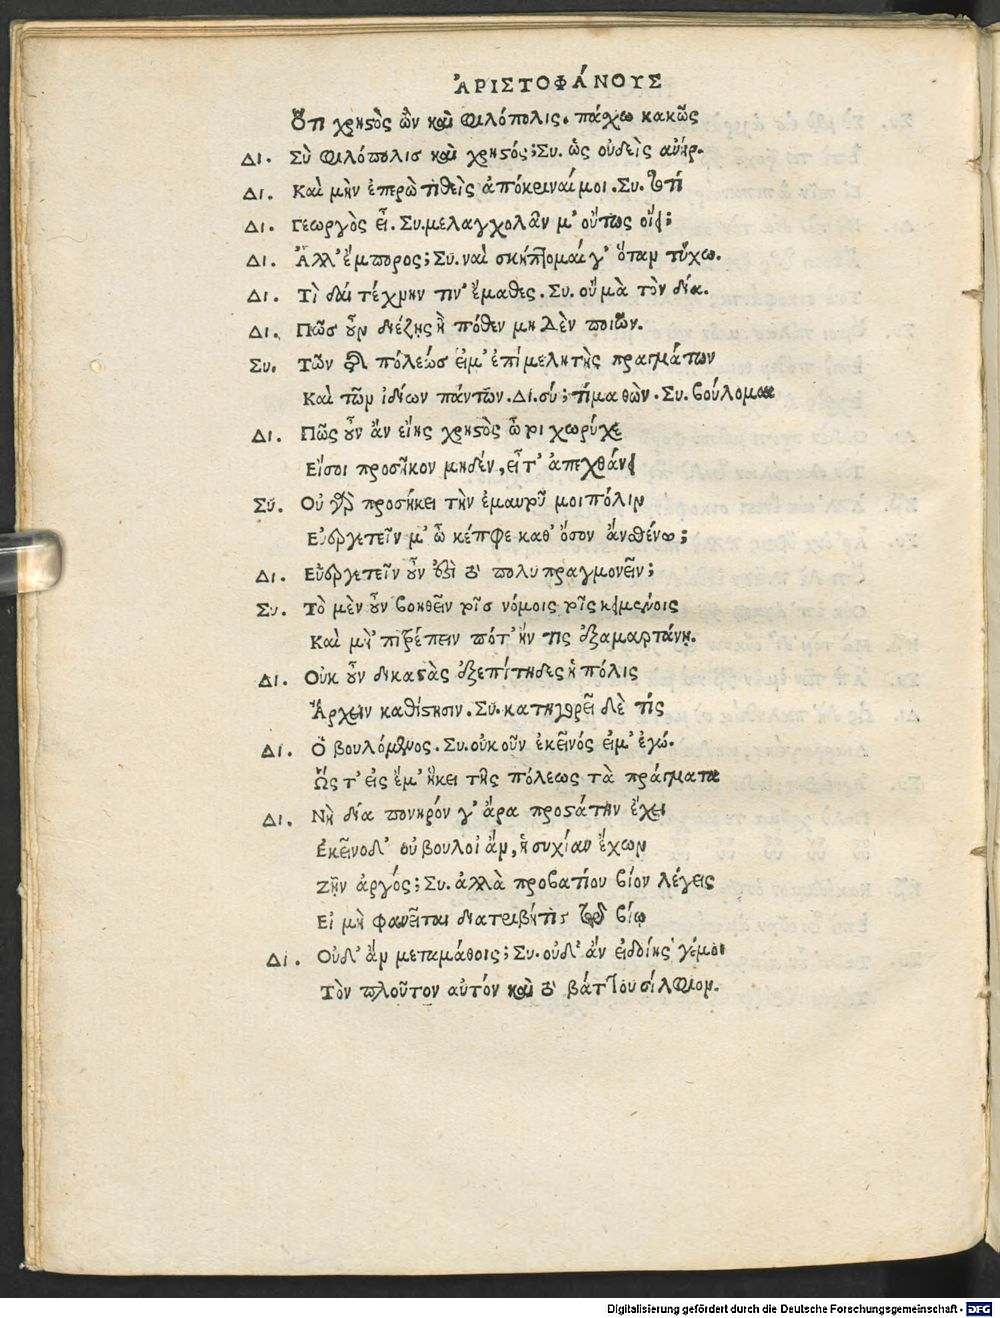 ἈΡΙΣΤΟΦΆΝΟΥΣ
Ὅτι χρηστὸς ὢν καὶ φιλόπολις. πάχω κακῶς
Δι. Σὺ φιλόπολις καὶ χρηστός; Συ. ὡς οὐδεὶς ἀνήρ.
Δι. Καὶ μὴν ἐπερωτηθεὶς ἀπόκριναί μοι. Συ. τὸ τί
Δι. Γεωργὸς εἶ. Συ. μελαγχολᾶν μ' οὕτως οἴει;
Δι. Ἀλλ' ἔμπορος; Συ. ναὶ σκήπτομαί γ' ὅταν τύχω.
Δι. Τὶ δαί τέχνην τιν' ἔμαθες. Συ. οὔ μὰ τὸν δία.
Δι. Πῶς οὖν διέζης ἢ πόθεν μηδὲν ποιῶν.
Συ. Τῶν τῆς πόλεώς εἰμ' ἐπιμελητὴς πραγμάτων
Καὶ τῶν ἰδίων πάντων. Δι. σύ; τί μαθὼν. Συ. βούλομαι
Δι. Πῶς οὖν ἂν εἴης χρηστὸς ὦ τοιχωρύχε
Εἴ σοι προσῆκον μηδέν, εἶτ' ἀπεχθάνει
Σύ. Οὐ γὰρ προσήκει τὴν ἐμαυτοῦ μοι πόλιν
Εὐεργετεῖν μ' ὦ κέπφε καθ' ὅσον ἂν σθένω;
Δι. Εὐεργετεῖν οὖν ἐστὶ τὸ πολυπραγμονεῖν;
Συ. Τὸ μὲν οὖν βοηθεῖν τοῖς νόμοις τοῖς κειμένοις
Καὶ μὴ 'πιτρέπειν πότ' ἤν τις ἐξαμαρτάνῃ.
Δι. Οὐκ οὖν δικαστὰς ἐξεπίτηδες ἡ πόλις
Ἄρχειν καθίστησιν. Συ. κατηγορεῖ δὲ τίς
Δι. Ὁ βουλόμενος. Συ. οὐκοῦν ἐκεῖνός εἰμ' ἐγώ.
Ὥς τ' εἰς ἔμ' ἥκει τῆς πόλεως τὰ πράγματα
Δι. Νὴ δία πονηρόν γ' ἄρα προστάτην ἔχει
Ἐκεῖνο δ' οὐ βούλοι ἄν, ἡσυχίαν ἔχων
Ζῆν ἀργός; Συ. ἀλλὰ προβατίου βίον λέγεις
Εἰ μὴ φανεῖται διατριβή τὶς τῷ βίῳ
Δι. Οὐδ' ἂν μεταμάθοις; Συ. οὐδ' ἂν εἰ δοίης γέ μοι
Τὸν πλοῦτον αὐτόν καὶ τὸ βάττου σίλφιον.
Digitalisierung gefördert durch die Deutsche Forschungsgemeinschaft - DFG